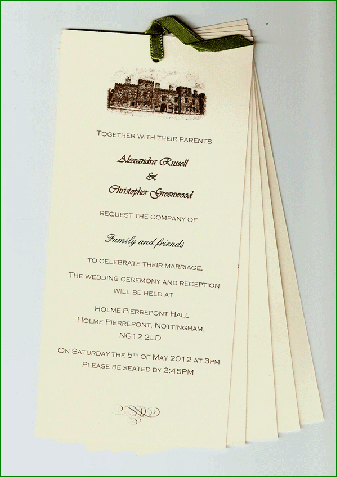 Together with their parents
Alexandra Russell
&
Christopher Greenwood
request the company of
Family and friends
to celebrate their marriage.
The wedding ceremony and reception
will be held at
Holme Pierrepont Hall
Holme Pierrepont, Nottingham,
NG12 2LD
On Saturday the 5th of May 2012 at 3pm
Please be seated by 2:45pm